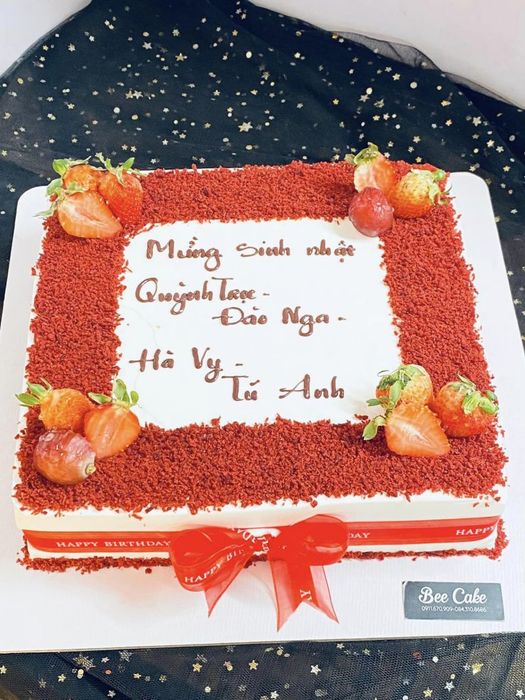 Mừng sinh nhật
Quỳnh Trúc -
Đào Nga -
Hà Vy -
Tú Anh
HAPPY BIRTHDAY
HAPPY BI
DAY
HAPPY
Bee Cake
0911.670.909-084.310.8686